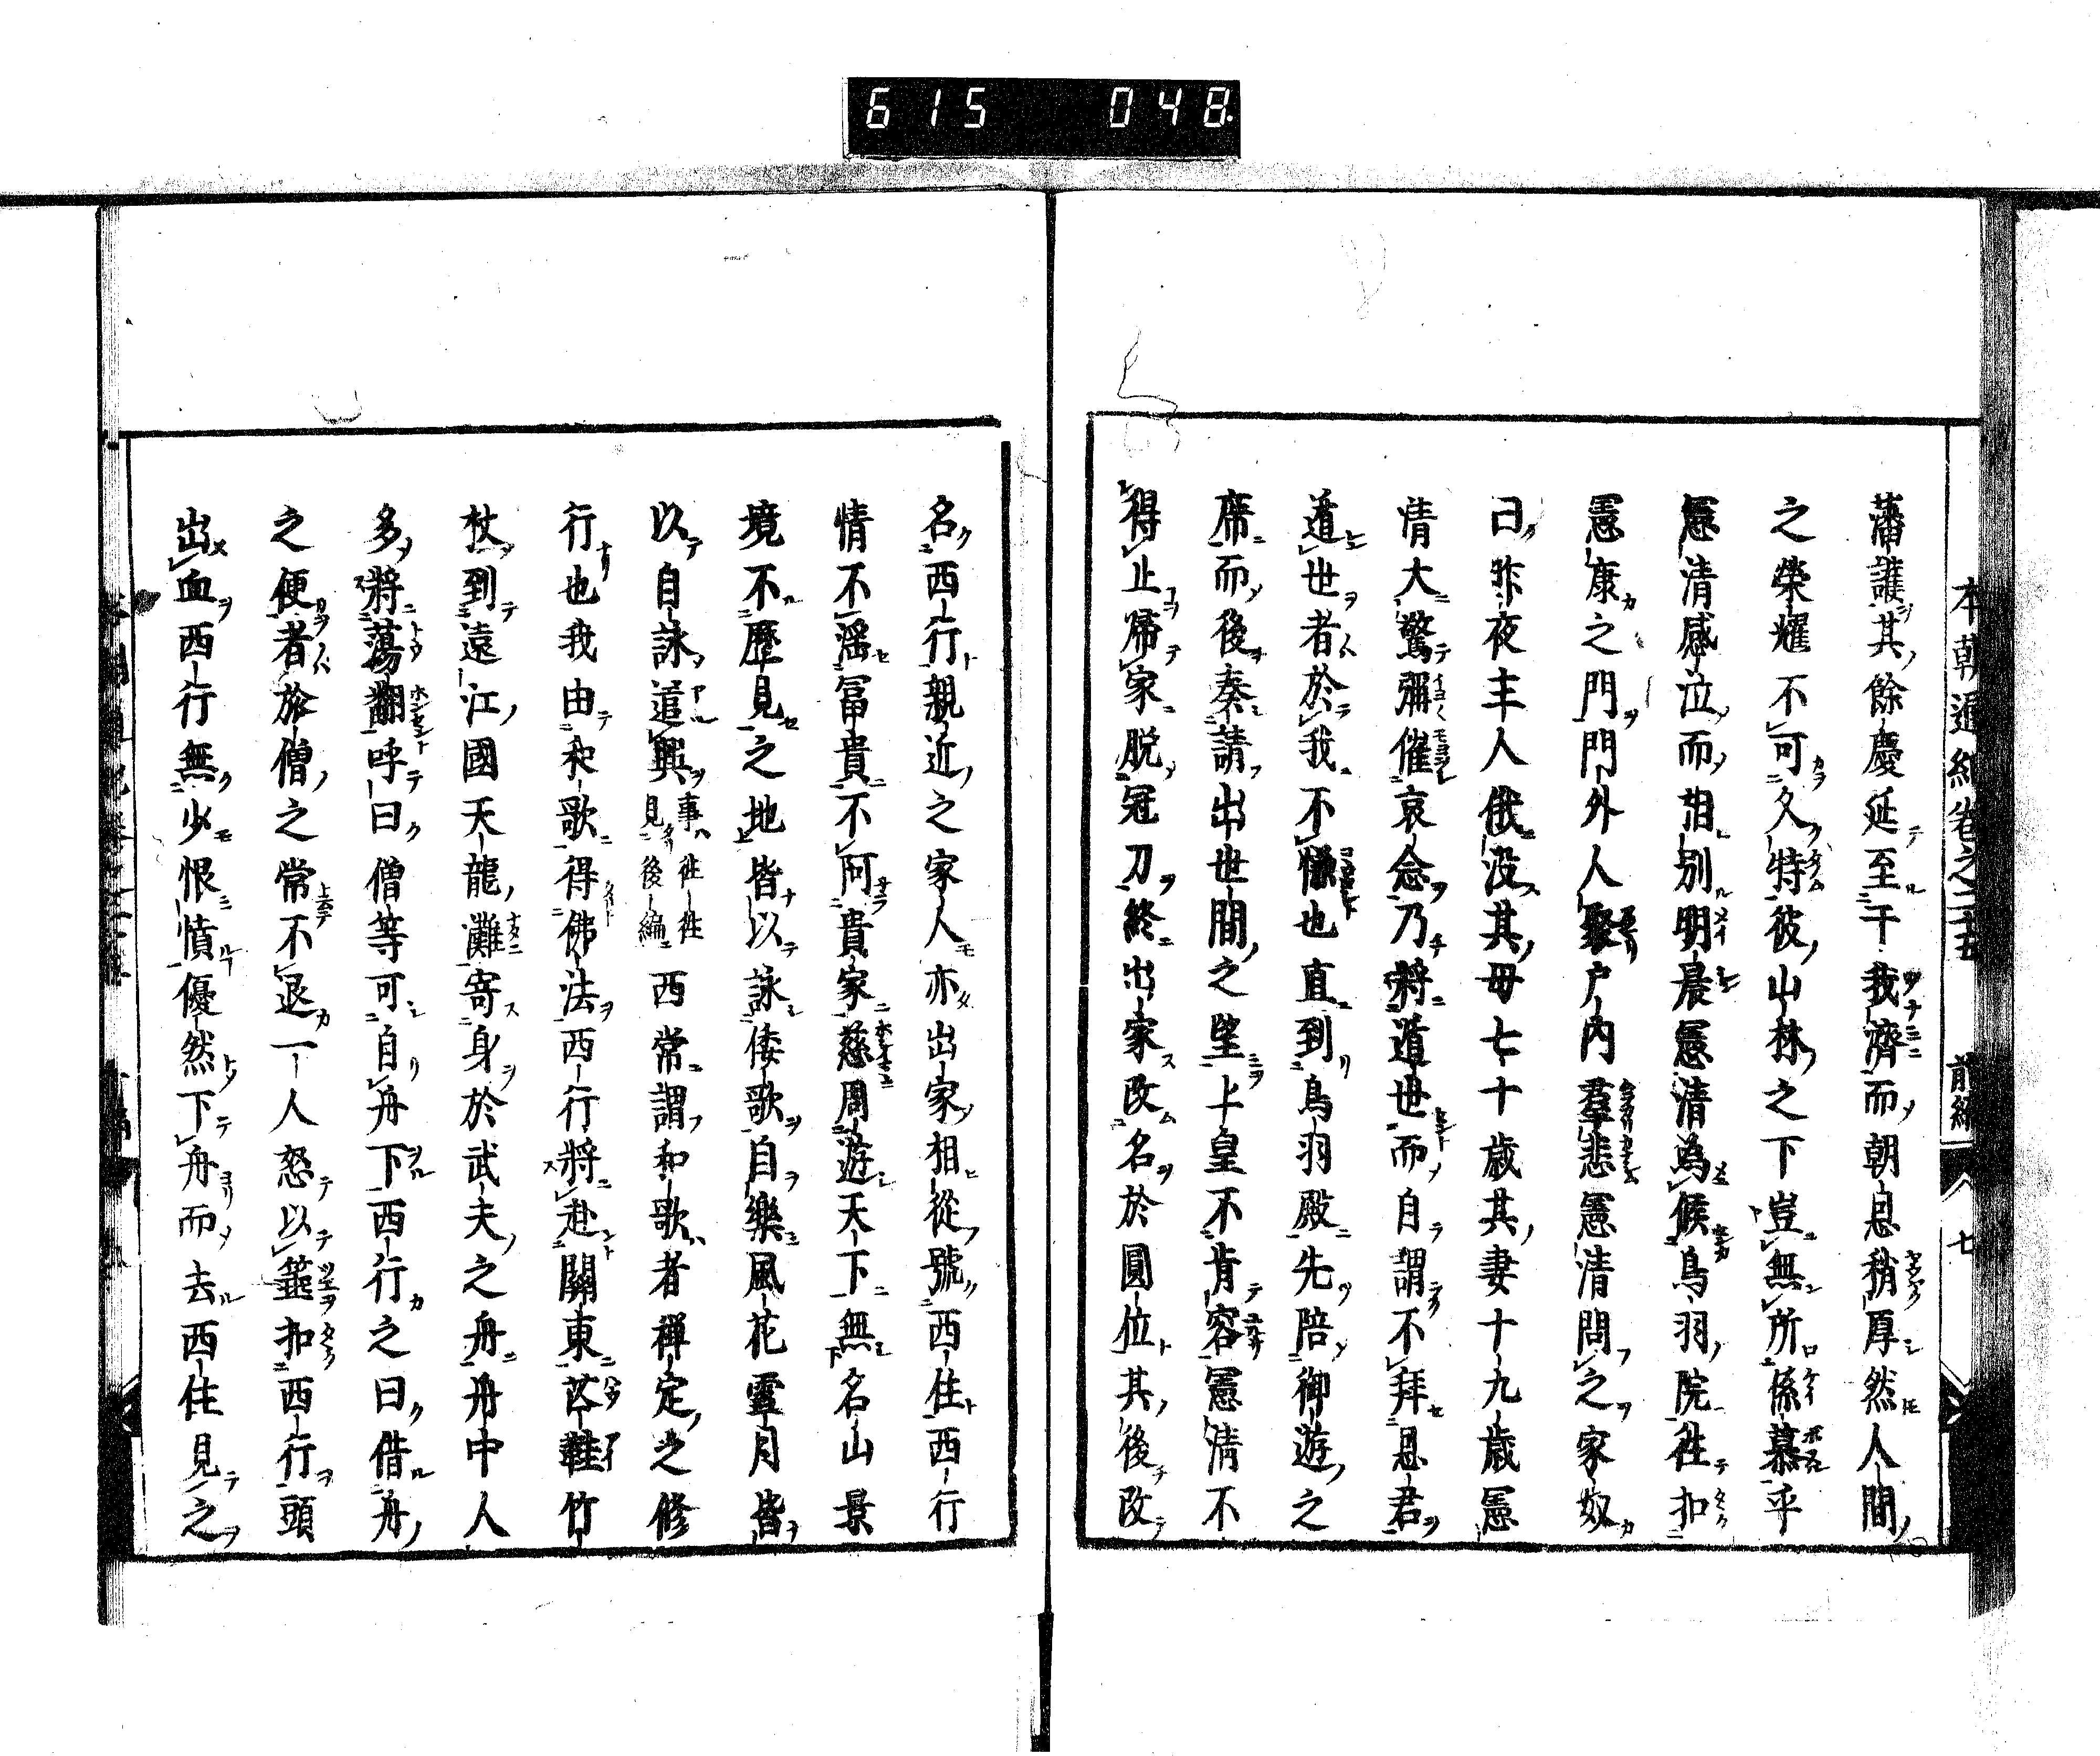 615 048
本朝遯紀卷之二十五 前編 七
藩護其餘慶延至干我濟而朝恩稍厚然人間
之榮耀不可久特彼山林之下豈無所係慕乎
憲清感泣而相別明晨憲清為候鳥羽院往扣
憲康之門門外人聚戶內羣悲憲清問之家奴
曰昨夜主人俄沒其母七十歲其妻十九歲憲
清大驚彌催哀念乃將遁世而自謂不拜恩君
遁世者於我不愜也直到鳥羽殿先陪御遊之
席而後奏請出世間之望上皇不肯容憲清不
得止歸家脫冠刀終出家改名於圓位其後改
名西行親近之家人亦出家相從號西住西行
情不滛冨貴不阿貴家慈周遊天下無名山景
境不歷見之地皆以詠倭歌自樂風花雪月皆
以自詠遣興事往往見後編西常謂和歌者禅定之修
行也我由和歌得佛法西行將赴關東芒鞋竹
杖到遠江國天龍灘寄身於武夫之舟舟中人
多將蕩翻呼曰僧等可自舟下西行之曰借舟
之便者旅僧之常不退一人怒以箠扣西行頭
出血西行無少恨憤優然下舟而去西住見之